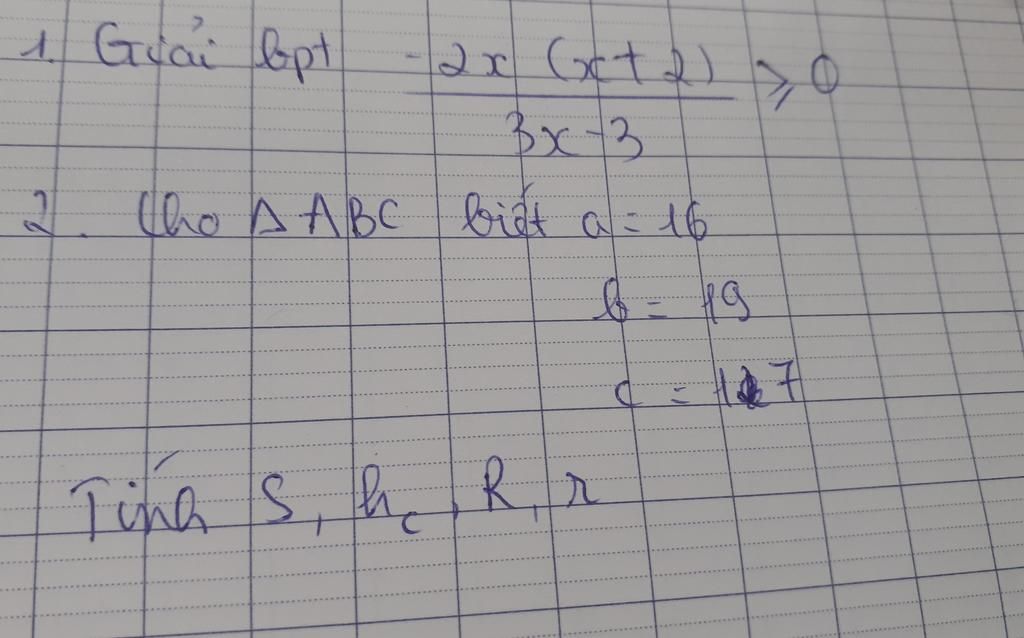 1. Giải bpt -2x (x+2) / 3x-3 ≥ 0
2. Cho Δ ABC biết a = 16
b = 19
c = 17
Tính S, h_c, R, r